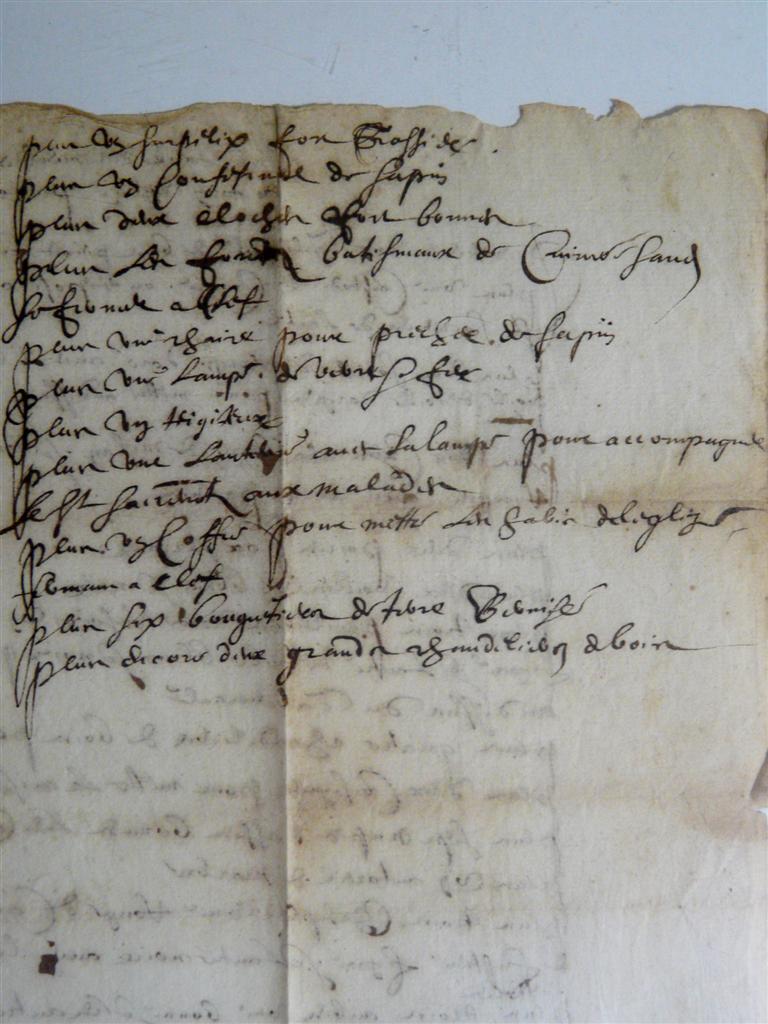 plus un surpelix fort grossier
plus un confesional de sapin
plus deux cloches fort bonnes
plus les fonds batismaux de
se fermant a clef
plus une chaire pour precher de sapin
plus une lampe de verre
plus un
plus une lanterne avec sa lampe pour accompagner
le st sacremt aux malades
plus un coffre pour mettre les habis de leglize
fermant a clef
plus six bouquetiers de terre vernisse
plus encore deux grandes chandeliers de bois